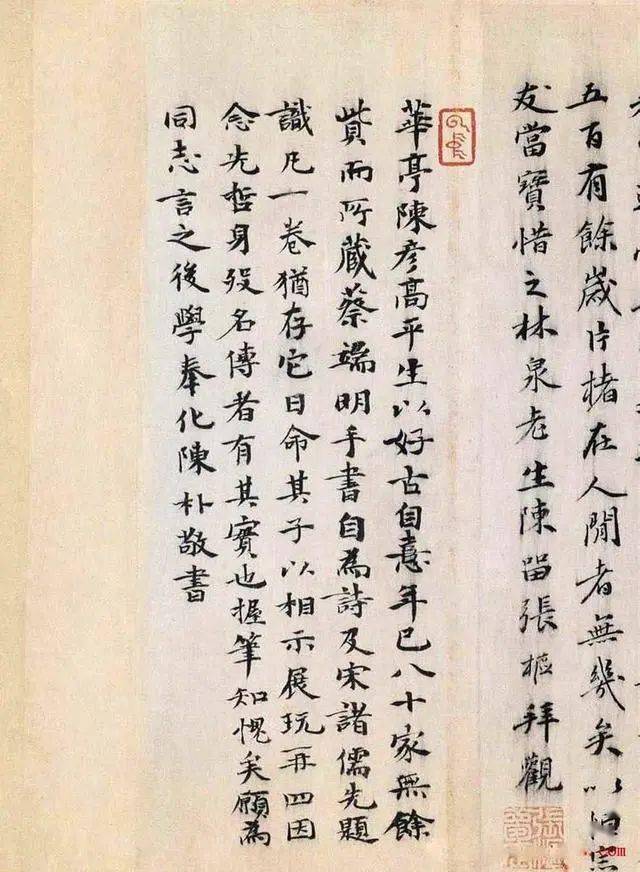 五百有餘歲片楮在人閒者無幾矣以
友當寶惜之林泉老生陳留張樞拜觀
華亭陳彥高平生以好古自憙年已八十家無餘
貲而所藏蔡端明手書自為詩及宋諸儒先題
識凡一卷猶存它日命其子以相示展玩再四因
念先哲身歿名傳者有其實也握筆知愧矣願為
同志言之後學奉化陳朴敬書
.com